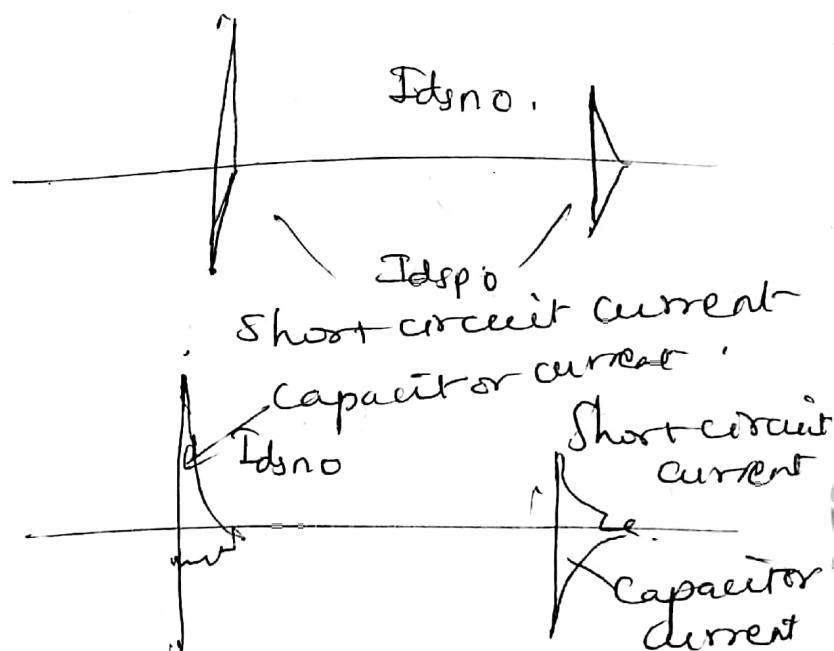 Idsno.
Idspo
Short circuit current
Capacitor current.
Idsno
Short circuit
current
Capacitor
current